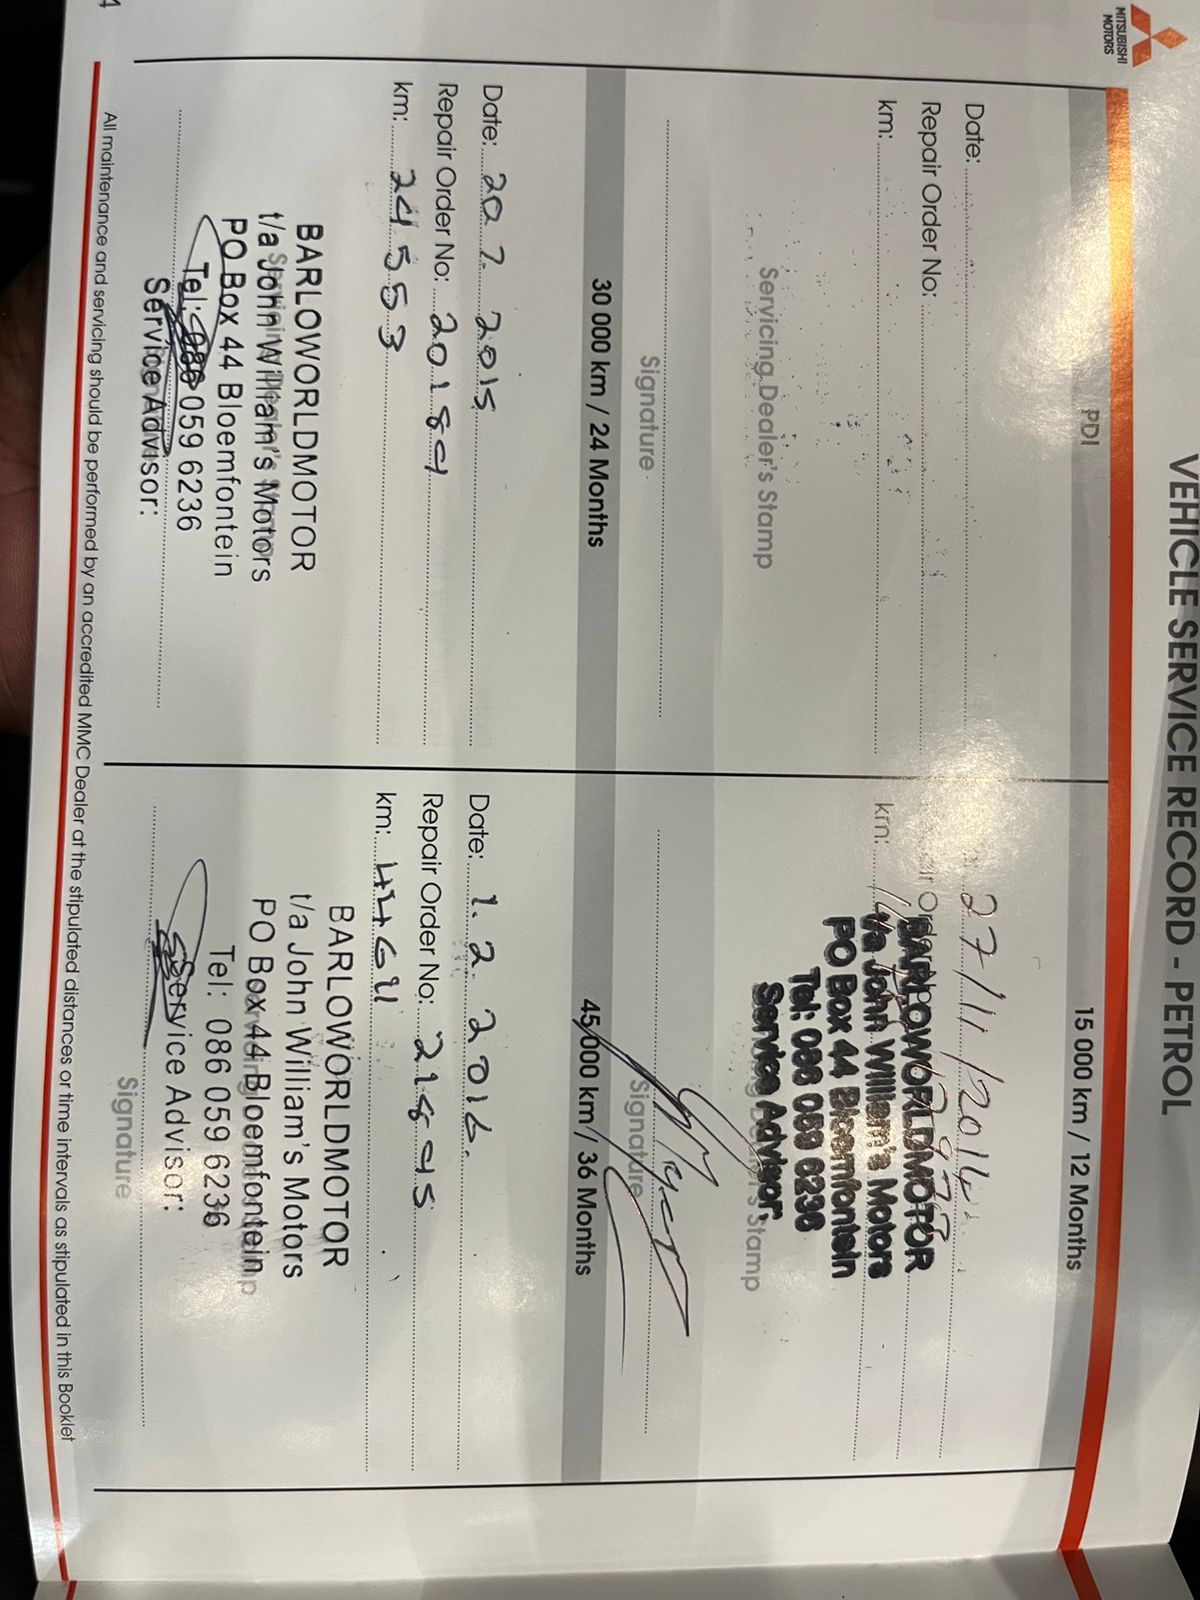 MITSUBISHI
MOTORS
VEHICLE SERVICE RECORD - PETROL
PDI
Date:
Repair Order No:
km:
Servicing Dealer's Stamp
Signature
15 000 km / 12 Months
27/11/2014
km:
BARLOWORLDMOTOR
t/a John William's Motors
PO Box 44 Bloemfontein
Tel: 086 059 6236
Service Advisor:
Signature
30 000 km / 24 Months
Date: 20 7 2015
Repair Order No: 20189
km: 24553
BARLOWORLDMOTOR
t/a John William's Motors
PO Box 44 Bloemfontein
Tel: 086 059 6236
Service Advisor:
45 000 km / 36 Months
Date: 1.2 2016
Repair Order No: 21895
km:
BARLOWORLDMOTOR
t/a John William's Motors
PO Box 44 Bloemfontein
Tel: 086 059 6236
Service Advisor:
Signature
All maintenance and servicing should be performed by an accredited MMC Dealer at the stipulated distances or time intervals as stipulated in this Booklet
4